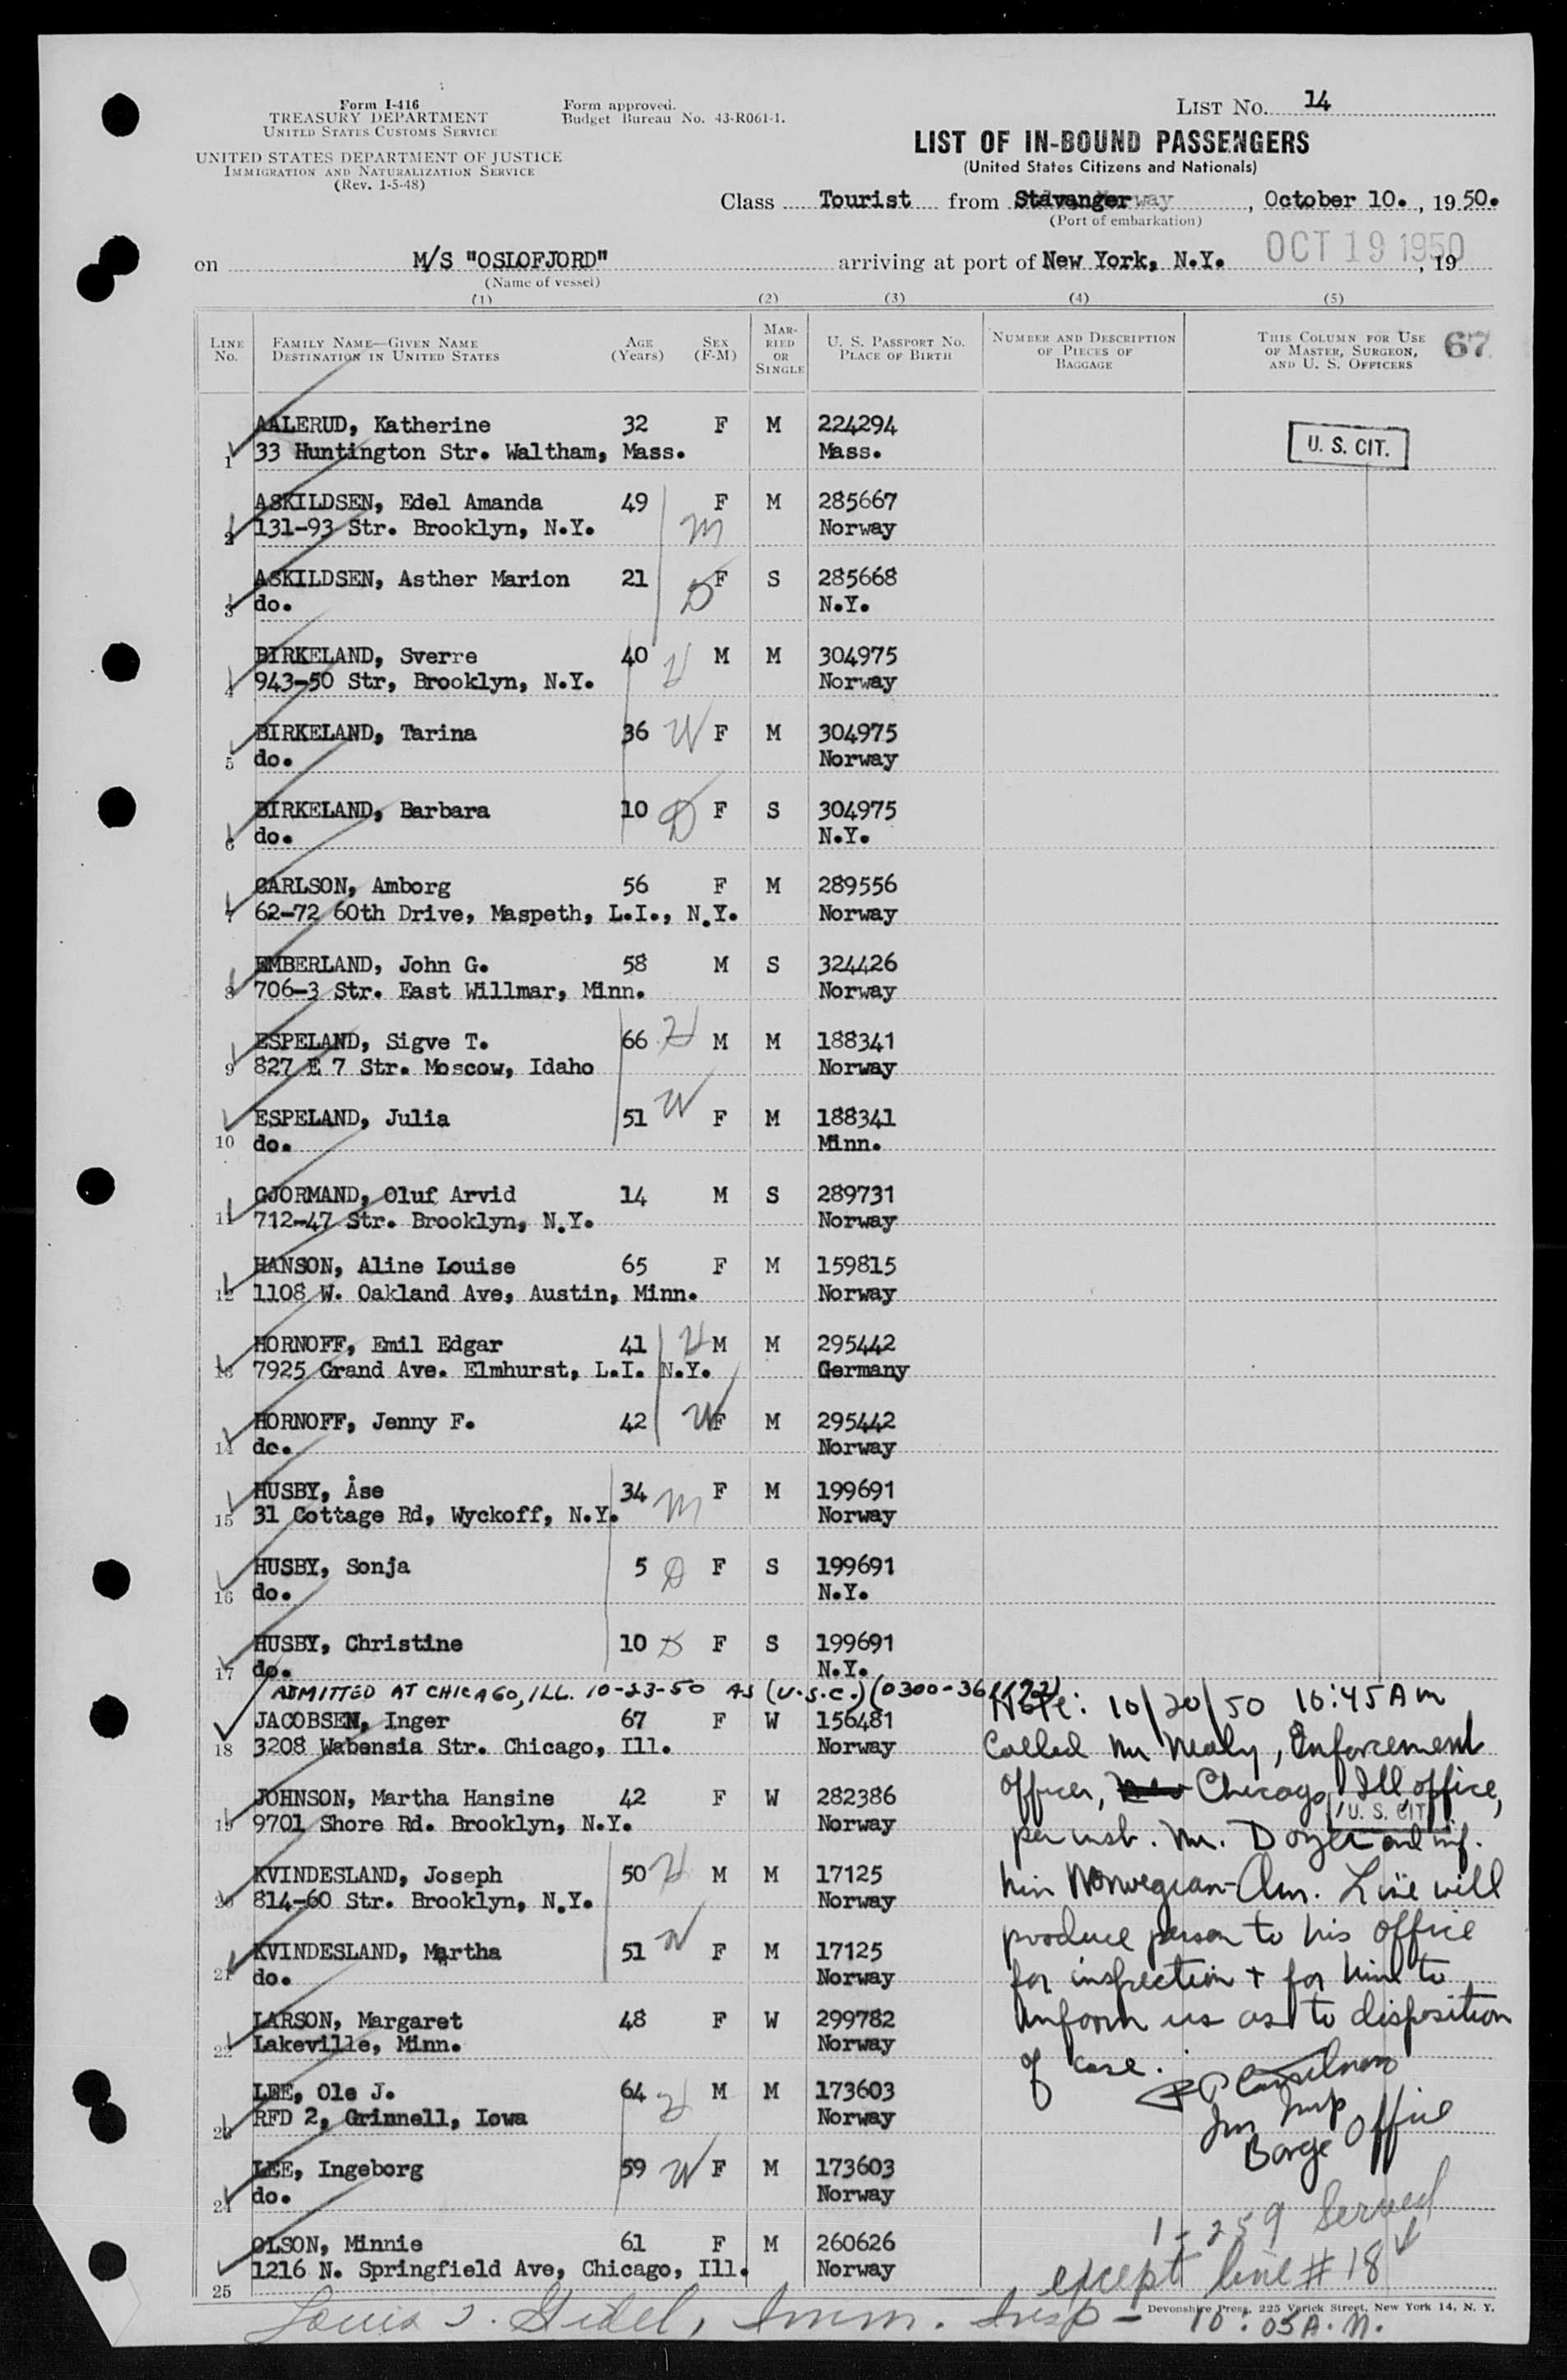 Form I-416
TREASURY DEPARTMENT
UNITED STATES CUSTOMS SERVICE
UNITED STATES DEPARTMENT OF JUSTICE
IMMIGRATION AND NATURALIZATION SERVICE
(Rev. 1-5-48)
Form approved.
Budget Bureau No. 43-R061-1.
LIST No. 14
LIST OF IN-BOUND PASSENGERS
(United States Citizens and Nationals)
Class Tourist from Stavanger , October 10. , 19 50.
(Port of embarkation)
on M/S "OSLOFJORD" arriving at port of New York, N.Y. OCT 19 1950 , 19
(Name of vessel)
(1) (2) (3) (4) (5)
LINE No. FAMILY NAME—GIVEN NAME DESTINATION IN UNITED STATES AGE (Years) SEX (F-M) MARRIED OR SINGLE U. S. PASSPORT No. PLACE OF BIRTH NUMBER AND DESCRIPTION OF PIECES OF BAGGAGE THIS COLUMN FOR USE OF MASTER, SURGEON, AND U. S. OFFICERS 67
AALERUD, Katherine 32 F M 224294
1 33 Huntington Str. Waltham, Mass. Mass. U. S. CIT.
ASKILDSEN, Edel Amanda 49 F M 285667
2 131-93 Str. Brooklyn, N.Y. M Norway
ASKILDSEN, Asther Marion 21 D F S 285668
3 do. N.Y.
BIRKELAND, Sverre 40 H M M 304975
4 943-50 Str, Brooklyn, N.Y. Norway
BIRKELAND, Tarina 36 W F M 304975
5 do. Norway
BIRKELAND, Barbara 10 D F S 304975
6 do. N.Y.
CARLSON, Amborg 56 F M 289556
7 62-72 60th Drive, Maspeth, L.I., N.Y. Norway
EMBERLAND, John G. 58 M S 324426
8 706-3 Str. East Willmar, Minn. Norway
ESPELAND, Sigve T. 66 H M M 188341
9 827 E 7 Str. Moscow, Idaho Norway
ESPELAND, Julia 51 W F M 188341
10 do. Minn.
GJORMAND, Oluf Arvid 14 M S 289731
11 712-47 Str. Brooklyn, N.Y. Norway
HANSON, Aline Louise 65 F M 159815
12 1108 W. Oakland Ave, Austin, Minn. Norway
HORNOFF, Emil Edgar 41 H M M 295442
13 7925 Grand Ave. Elmhurst, L.I. N.Y. Germany
HORNOFF, Jenny F. 42 W F M 295442
14 do. Norway
HUSBY, Åse 34 M F M 199691
15 31 Cottage Rd, Wyckoff, N.Y. Norway
HUSBY, Sonja 5 D F S 199691
16 do. N.Y.
HUSBY, Christine 10 D F S 199691
17 do. N.Y.
ADMITTED AT CHICAGO, ILL. 10-23-50 AS (U.S.C.)
JACOBSEN, Inger 67 F W 156481
18 3208 Wabensia Str. Chicago, Ill. Norway
JOHNSON, Martha Hansine 42 F W 282386
19 9701 Shore Rd. Brooklyn, N.Y. Norway
KVINDESLAND, Joseph 50 H M M 17125
20 814-60 Str. Brooklyn, N.Y. Norway
KVINDESLAND, Martha 51 W F M 17125
21 do. Norway
LARSON, Margaret 48 F W 299782
22 Lakeville, Minn. Norway
LEE, Ole J. 64 H M M 173603
23 RFD 2, Grinnell, Iowa Norway
LEE, Ingeborg 59 W F M 173603
24 do. Norway
OLSON, Minnie 61 F M 260626
25 1216 N. Springfield Ave, Chicago, Ill. Norway
Note: 10/20/50 10:45 AM
Called Mr Nealy, Enforcement
Officer, Chicago, Ill, office,
U. S. CIT
per inst. Mr. Doyle and inf.
him Norwegian-Am. Line will
produce person to his office
for inspection + for him to
inform us as to disposition
of case.
Imm Insp
Barge Office
1-259 Served
except line # 18
Louis J. Imm. Insp — 10:05 A.M.
Devonshire Press, 225 Varick Street, New York 14, N. Y.